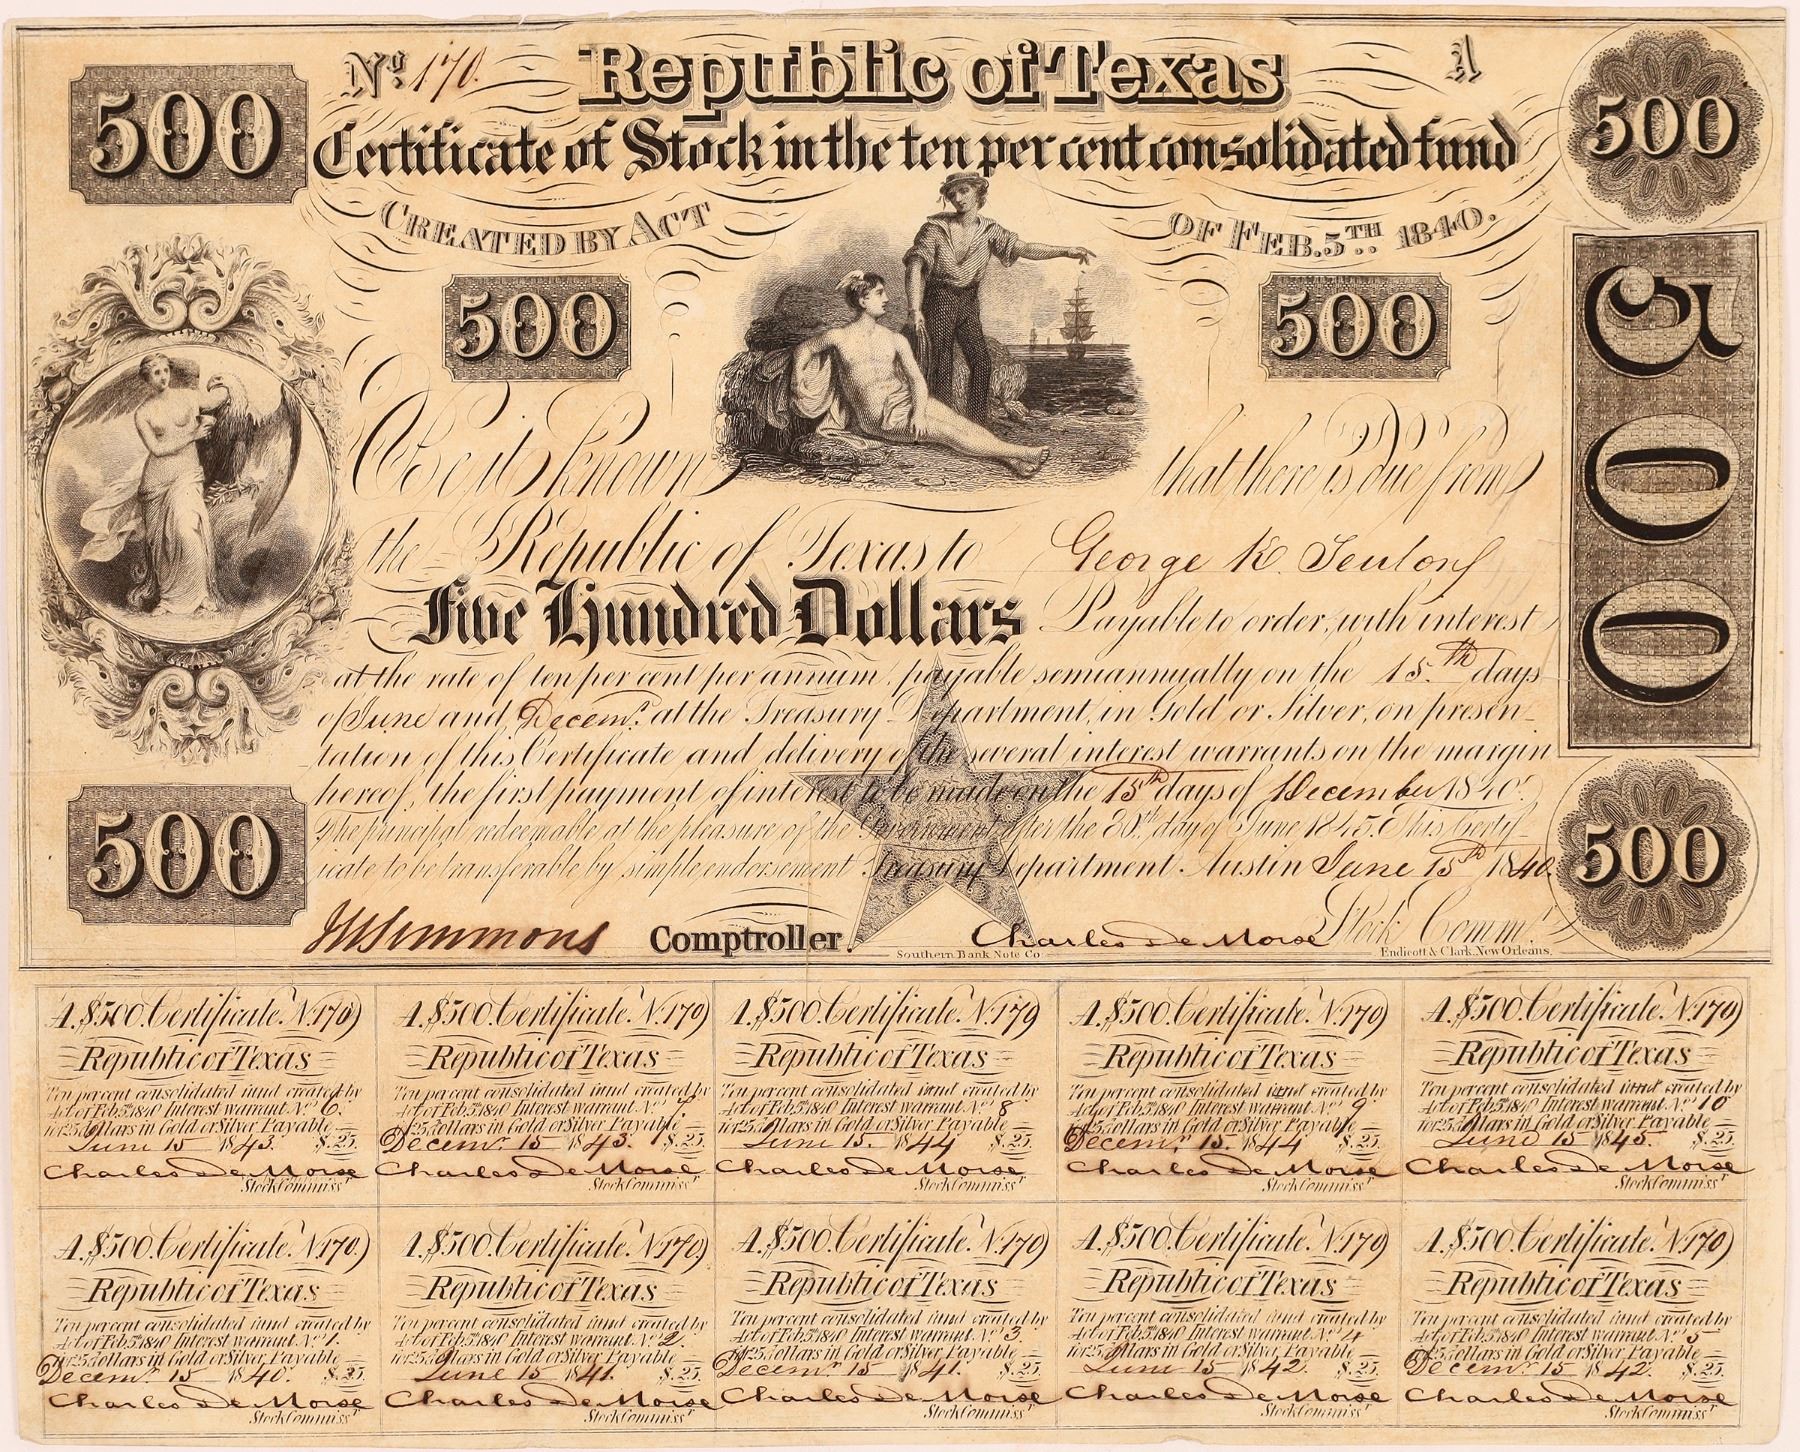 500
No. 170.
Republic of Texas
A
500
Certificate of Stock in the ten per cent consolidated fund
CREATED BY ACT
OF FEB. 5TH 1840.
500
500
500
Be it known
that there is due from
the Republic of Texas to George K. Teulon
Five Hundred Dollars Payable to order, with interest
at the rate of ten per cent per annum, payable semiannually on the 15.th days
of June and Decemr. at the Treasury Department, in Gold or Silver, on presen-
tation of this Certificate and delivery of the several interest warrants on the margin
hereof, the first payment of interest to be made on the 15th days of December 1840.
The principal redeemable at the pleasure of the Government after the 30th day of June 1845. This Certifi-
cate to be transferable by simple endorsement Treasury Department. Austin June 15th 1840.
500
500
Simmons Comptroller. Charles De Morse Stock Commr.
Southern Bank Note Co
Endicott & Clark, New Orleans.
A. $500. Certificate. N. 170
Republic of Texas
Ten per cent consolidated fund created by
Act of Feb. 5th 1840 Interest warrant No. 6.
for 25 dollars in Gold or Silver, Payable
June 15 1843. $.25.
Charles De Morse
Stock Commissr
A. $500. Certificate. N. 170
Republic of Texas
Ten per cent consolidated fund created by
Act of Feb. 5th 1840 Interest warrant No. 7.
for 25 dollars in Gold or Silver, Payable
Decemr. 15 1843. $.25.
Charles De Morse
Stock Commissr
A. $500. Certificate. N. 170
Republic of Texas
Ten per cent consolidated fund created by
Act of Feb. 5th 1840 Interest warrant No. 8
for 25 dollars in Gold or Silver, Payable
June 15. 1844 $.25.
Charles De Morse
Stock Commissr
A. $500. Certificate. N. 170
Republic of Texas
Ten per cent consolidated fund created by
Act of Feb. 5th 1840 Interest warrant No. 9.
for 25 dollars in Gold or Silver, Payable
Decemr. 15. 1844 $.25.
Charles De Morse
Stock Commissr
A. $500. Certificate. N. 170
Republic of Texas
Ten per cent consolidated fund created by
Act of Feb. 5th 1840 Interest warrant No. 10
for 25 dollars in Gold or Silver, Payable
June 15 1845. $.25.
Charles De Morse
Stock Commissr
A. $500. Certificate. N. 170.
Republic of Texas
Ten per cent consolidated fund created by
Act of Feb. 5th 1840 Interest warrant No. 1.
for 25 dollars in Gold or Silver, Payable
Decemr. 15 1840. $.25.
Charles De Morse
Stock Commissr
A. $500. Certificate. N. 170
Republic of Texas
Ten per cent consolidated fund created by
Act of Feb. 5th 1840 Interest warrant No. 2.
for 25 dollars in Gold or Silver, Payable
June 15 1841. $.25.
Charles De Morse
Stock Commissr
A. $500. Certificate. N. 170
Republic of Texas
Ten per cent consolidated fund created by
Act of Feb. 5th 1840 Interest warrant No. 3.
for 25 dollars in Gold or Silver, Payable
Decemr. 15 1841. $.25.
Charles De Morse
Stock Commissr
A. $500. Certificate. N. 170
Republic of Texas
Ten per cent consolidated fund created by
Act of Feb. 5th 1840 Interest warrant No. 4
for 25 dollars in Gold or Silver, Payable
June 15 1842. $.25.
Charles De Morse
Stock Commissr
A. $500. Certificate. N. 170
Republic of Texas
Ten per cent consolidated fund created by
Act of Feb. 5th 1840 Interest warrant No. 5
for 25 dollars in Gold or Silver, Payable
Decemr. 15 1842. $.25.
Charles De Morse
Stock Commissr